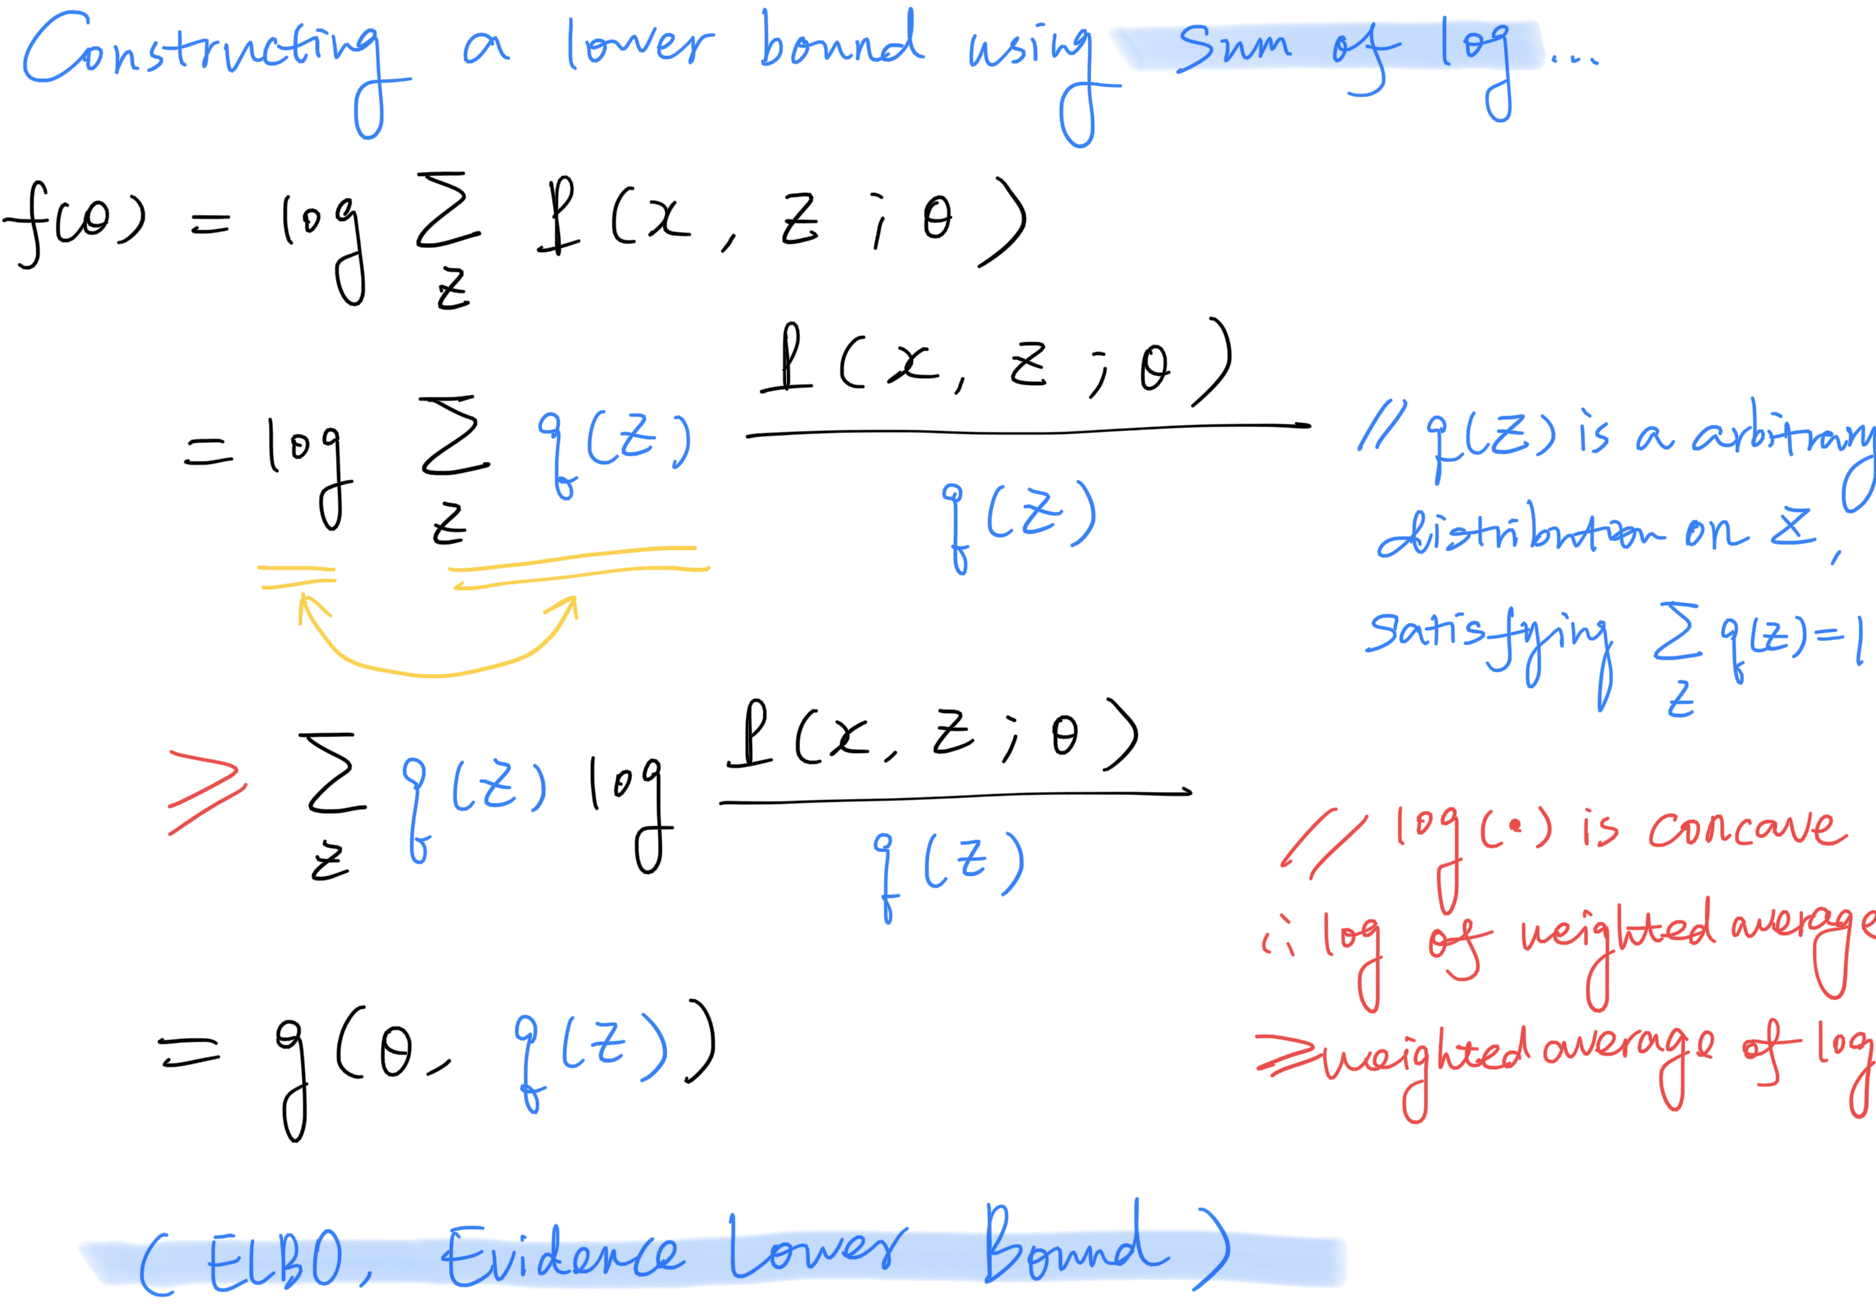 Constructing a lower bound using sum of log ...
f(θ) = log Σ_z P(x, z ; θ)
= log Σ_z q(z) P(x, z ; θ) / q(z) // q(z) is a arbitrary
distribution on z,
satisfying Σ_z q(z)=1
≥ Σ_z q(z) log P(x, z ; θ) / q(z)
// log(•) is concave
∴ log of weighted average
≥ weighted average of log
= g(θ, q(z))
(ELBO, Evidence Lower Bound)